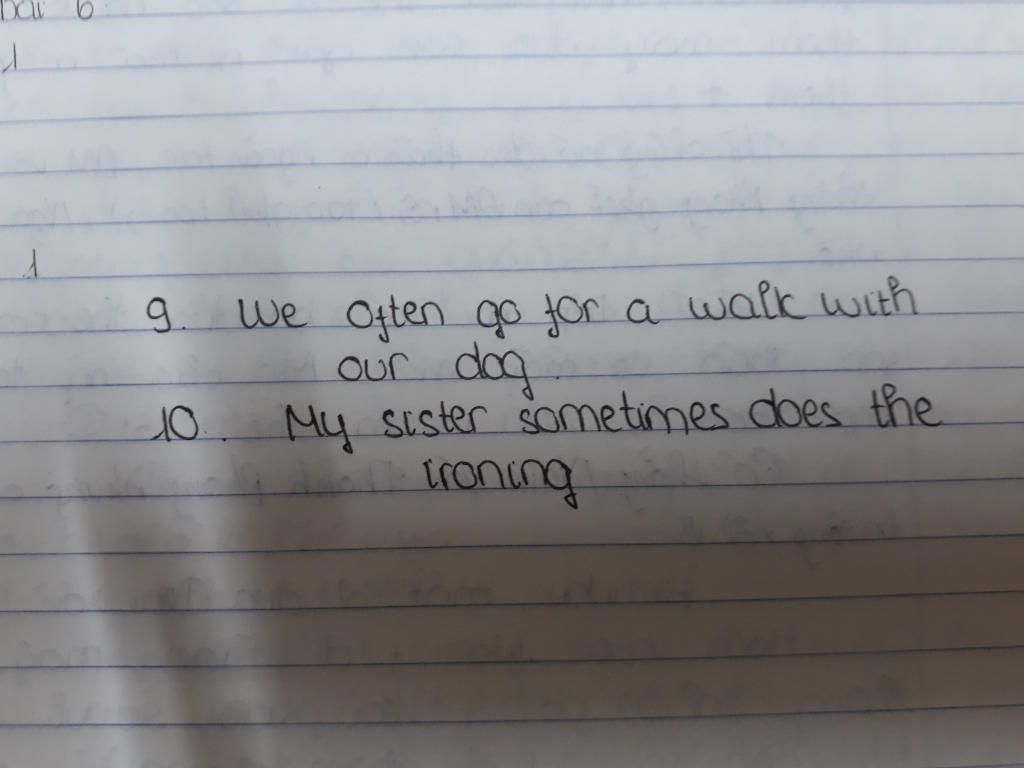 bài 6
1
1
9. We often go for a walk with
our dog.
10. My sister sometimes does the
ironing